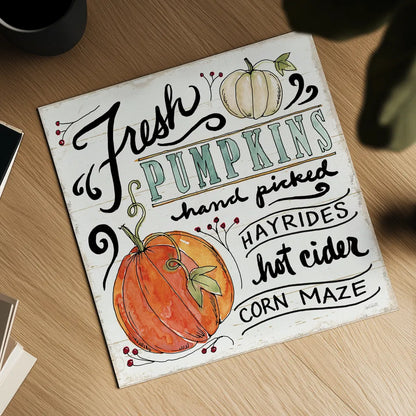 Fresh
PUMPKINS
hand picked
HAYRIDES
hot cider
CORN MAZE